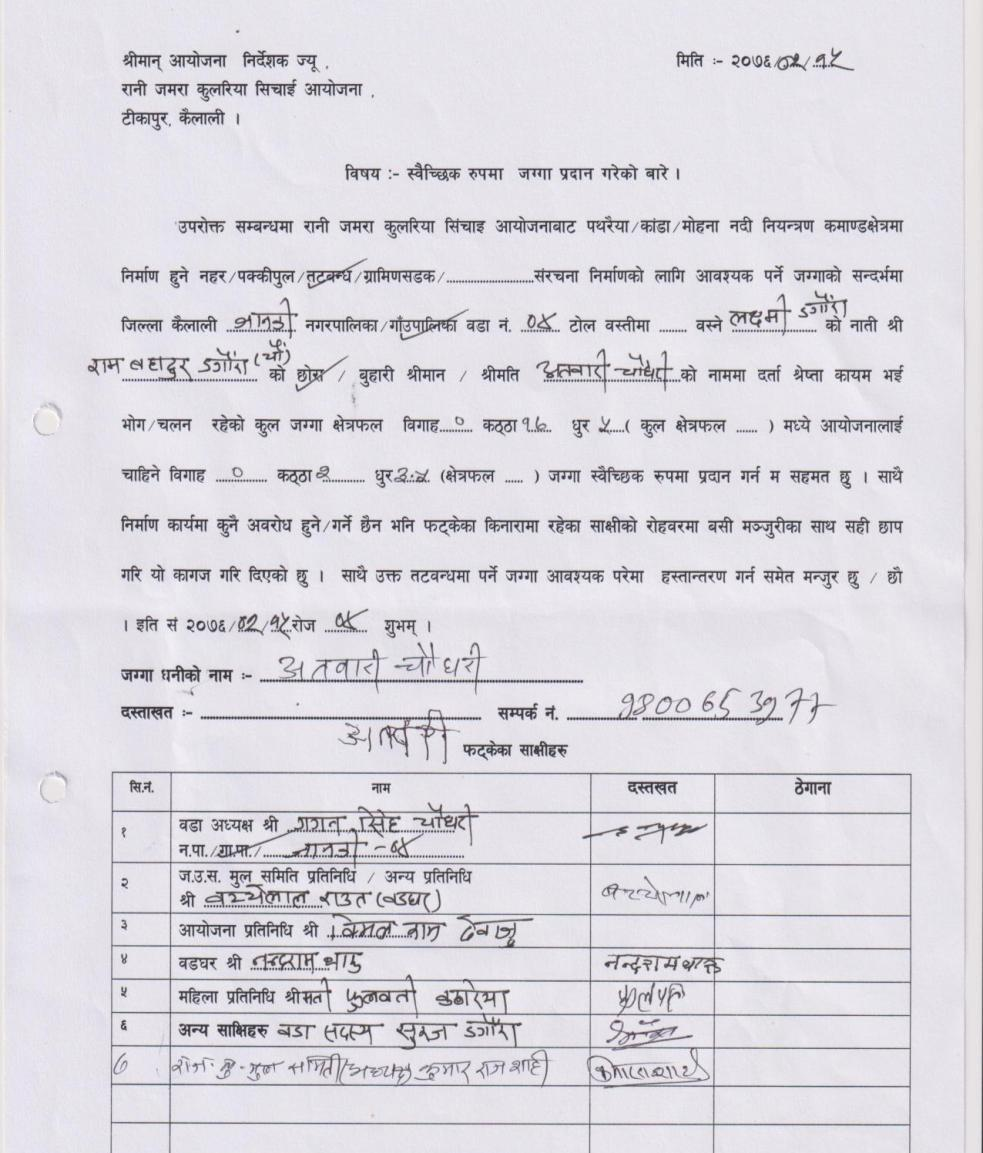 श्रीमान् आयोजना निर्देशक ज्यू ,
मिति :- २०७६/०२/१५
रानी जमरा कुलरिया सिचाई आयोजना ,
टीकापुर, कैलाली ।
विषय :- स्वैच्छिक रुपमा जग्गा प्रदान गरेको बारे ।
उपरोक्त सम्बन्धमा रानी जमरा कुलरिया सिंचाइ आयोजनाबाट पथरैया/कांडा/मोहना नदी नियन्त्रण कमाण्डक्षेत्रमा
निर्माण हुने नहर/पक्कीपुल/तटबन्ध/ग्रामिणसडक/....................संरचना निर्माणको लागि आवश्यक पर्ने जग्गाको सन्दर्भमा
जिल्ला कैलाली जानकी नगरपालिका/गाँउपालिका वडा नं. ०४ टोल वस्तीमा ....... वस्ने लक्ष्मी डगौरा को नाती श्री
राम बहादुर डगौरा (चौ) को छोरा / बुहारी श्रीमान / श्रीमति अतवारी चौधरी को नाममा दर्ता श्रेष्ता कायम भई
भोग/चलन रहेको कुल जग्गा क्षेत्रफल विगाह ० कठ्ठा १६ धुर ५ ( कुल क्षेत्रफल ...... ) मध्ये आयोजनालाई
चाहिने विगाह ० कठ्ठा २ धुर ३.५ (क्षेत्रफल ..... ) जग्गा स्वैच्छिक रुपमा प्रदान गर्न म सहमत छु । साथै
निर्माण कार्यमा कुनै अवरोध हुने/गर्ने छैन भनि फट्केका किनारामा रहेका साक्षीको रोहवरमा बसी मञ्जुरीका साथ सही छाप
गरि यो कागज गरि दिएको छु । साथै उक्त तटवन्धमा पर्ने जग्गा आवश्यक परेमा हस्तान्तरण गर्न समेत मन्जुर छु / छौ
। इति सं २०७६/०२/१५ रोज ०४ शुभम् ।
जग्गा धनीको नाम :- अतवारी चौधरी
दस्ताखत :- सम्पर्क नं. 9800653977
अतवारी
फट्केका साक्षीहरु
सि.नं. नाम दस्तखत ठेगाना
१ वडा अध्यक्ष श्री गगन सिंह चौधरी
न.पा./गा.पा./ जानकी -०४
२ ज.उ.स. मुल समिति प्रतिनिधि / अन्य प्रतिनिधि
श्री बच्चेलाल राउत (वडघर) बच्चेलाल
३ आयोजना प्रतिनिधि श्री विमल राम
४ वडघर श्री नन्दराम थारु नन्दराम थारु
५ महिला प्रतिनिधि श्रीमती फुलवती कठरिया फुलवती
६ अन्य साक्षिहरु वडा सदस्य सुरज डगौरा
७ मुल समिति अध्यक्ष कुमार राज शाही